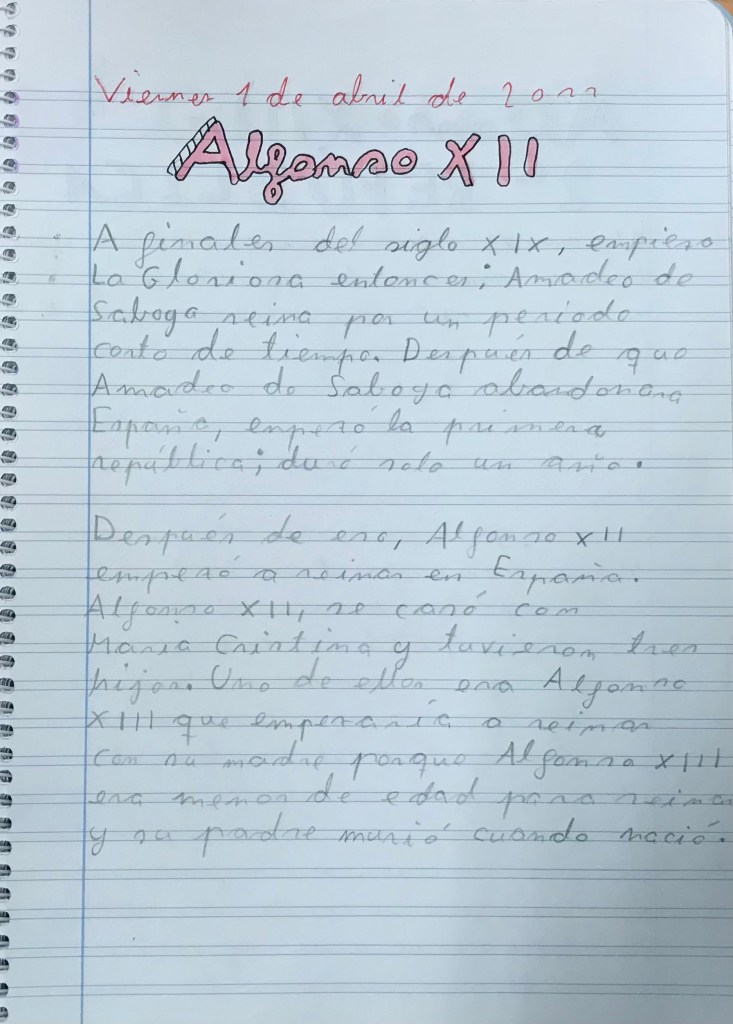 Viernes 1 de abril de 2022
Alfonso XII
A finales del siglo XIX, empieso
La Gloriosa entonces; Amadeo de
Saboga reina por un período
corto de tiempo. Después de que
Amadeo de Saboya abandonara
España, empesó la primera
república; duró solo un año.
Después de eso, Alfonso XII
empesó a reinar en España.
Alfonso XII, se casó con
María Cristina y tuvieron tres
hijos. Uno de ellos era Alfonso
XIII que emperaría a reinar
con su madre porque Alfonso XIII
era menor de edad para reinar
y su padre murió cuando nació.